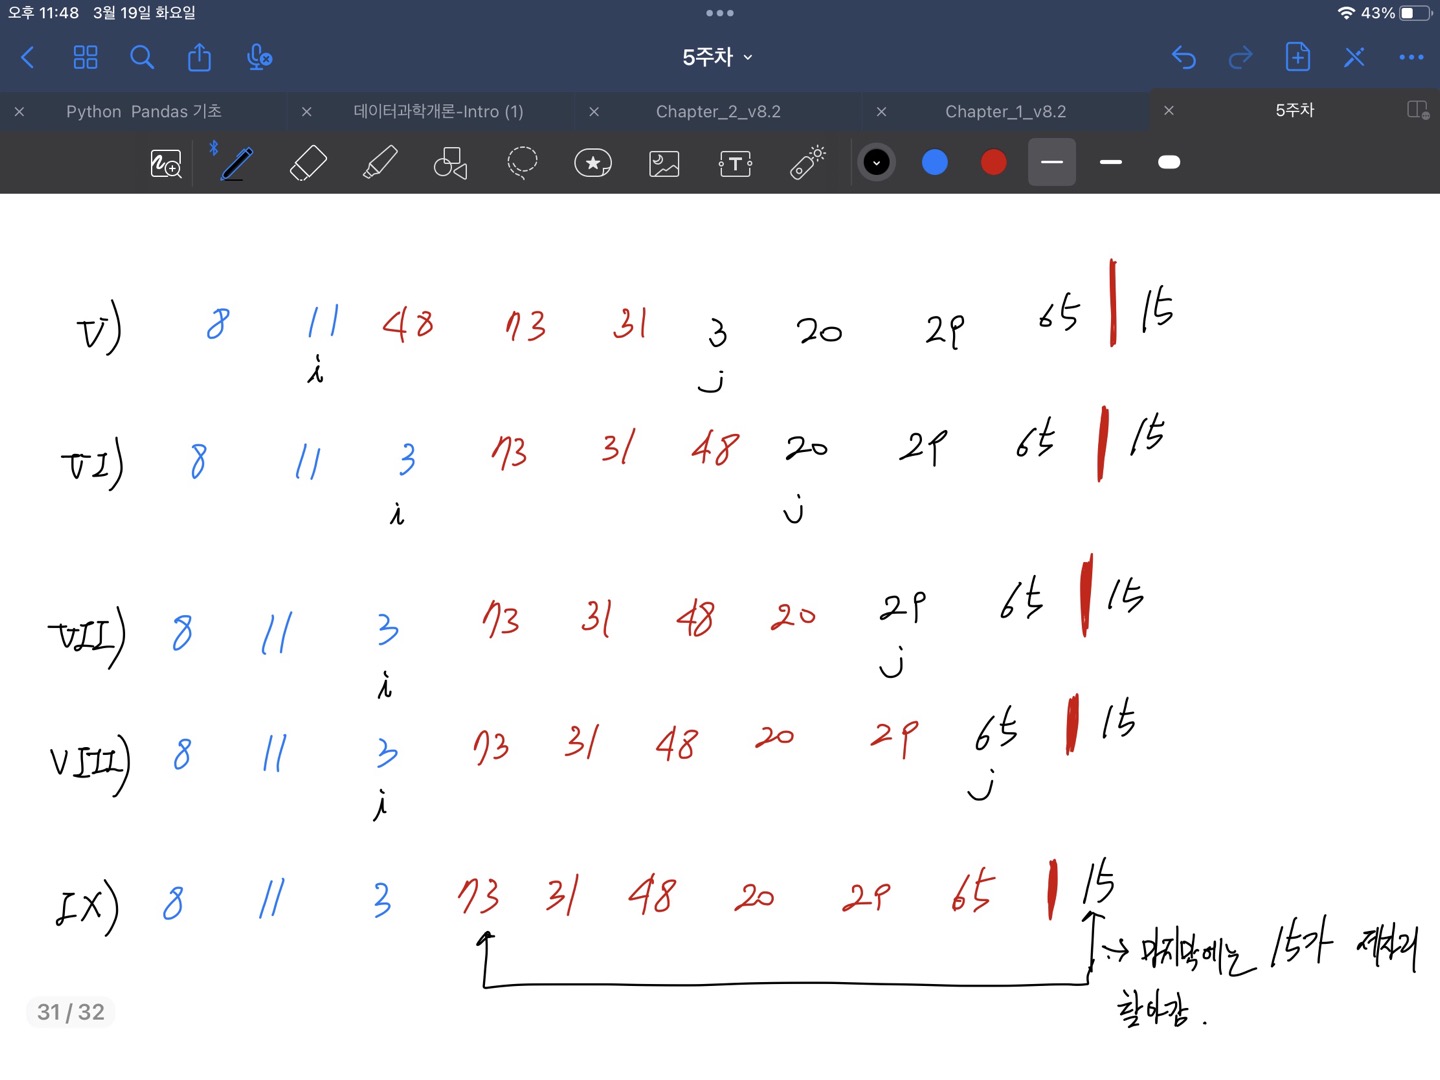 오후 11:48 3월 19일 화요일
43%
5주차
Python Pandas 기초
데이터과학개론-Intro (1)
Chapter_2_v8.2
Chapter_1_v8.2
5주차
V) 8 11 48 73 31 3 20 29 65 | 15
i j
VI) 8 11 3 73 31 48 20 29 65 | 15
i j
VII) 8 11 3 73 31 48 20 29 65 | 15
i j
VIII) 8 11 3 73 31 48 20 29 65 | 15
i j
IX) 8 11 3 73 31 48 20 29 65 | 15
→ 마지막에는 15가 제자리
찾아감.
31 / 32